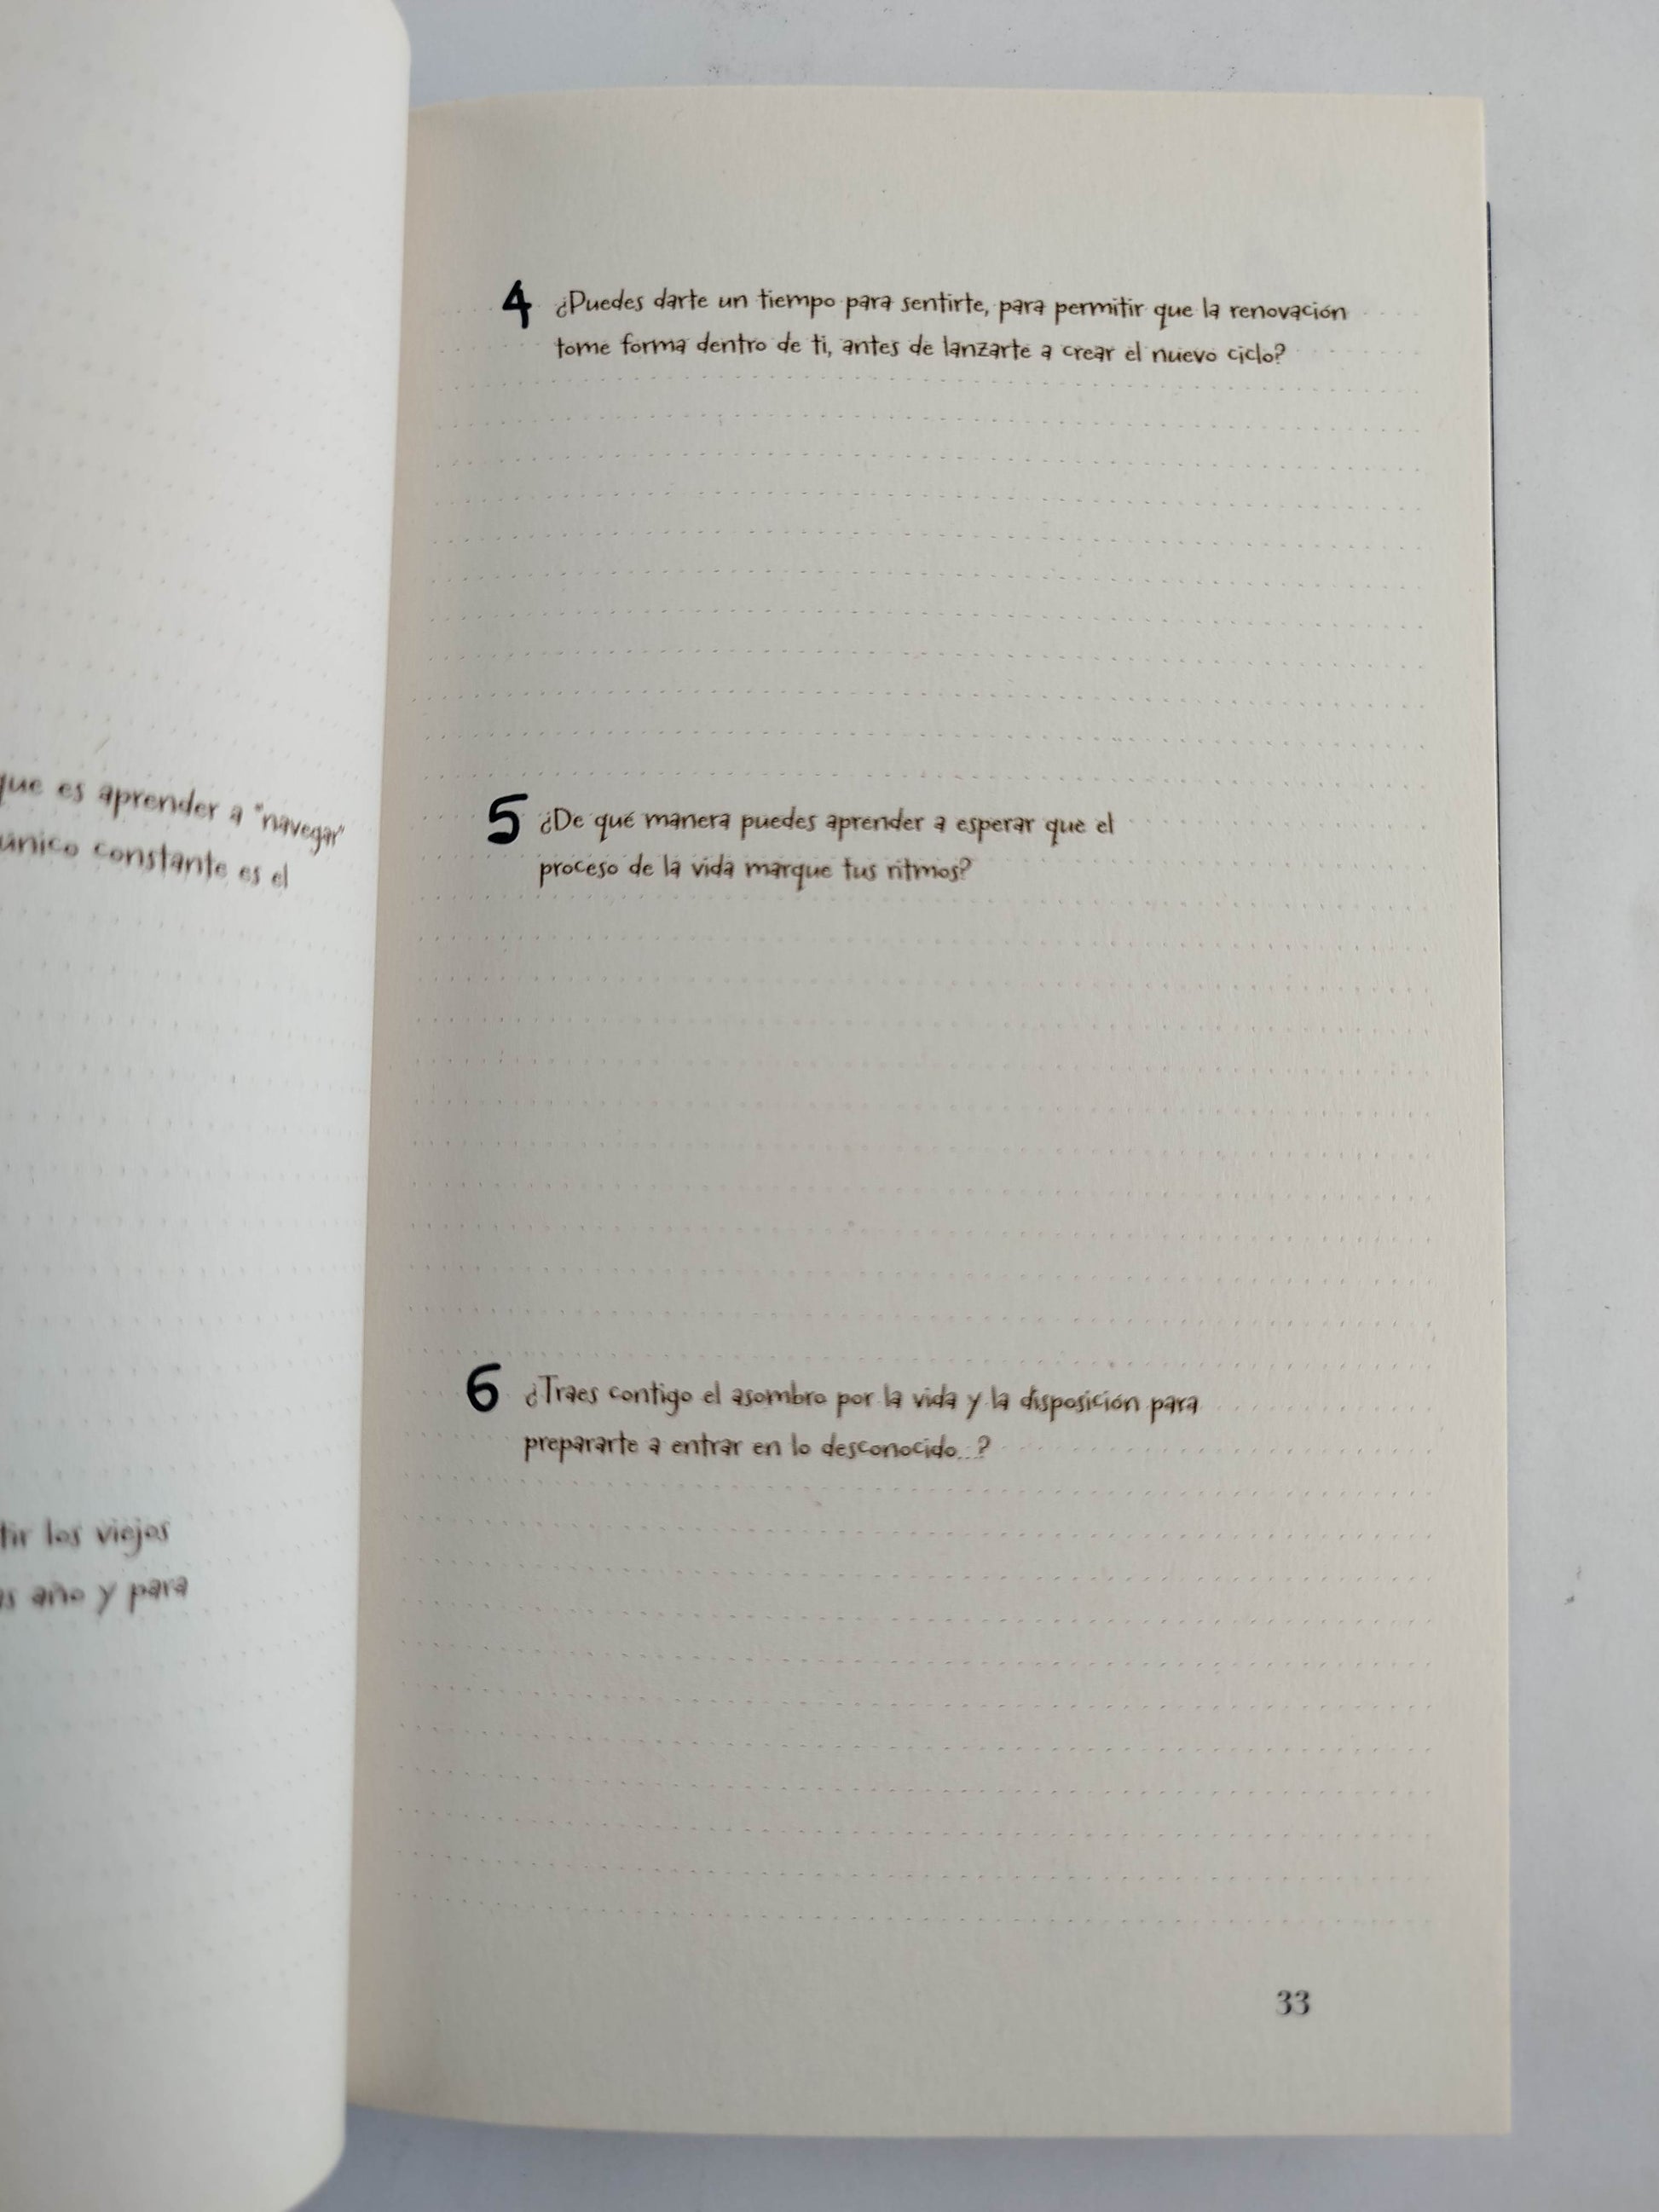 que es aprender a "navegar"
único constante es el
los viejos
año y para
4 ¿Puedes darte un tiempo para sentirte, para permitir que la renovación
tome forma dentro de ti, antes de lanzarte a crear el nuevo ciclo?
5 ¿De qué manera puedes aprender a esperar que el
proceso de la vida marque tus ritmos?
6 ¿Traes contigo el asombro por la vida y la disposición para
prepararte a entrar en lo desconocido...?
33